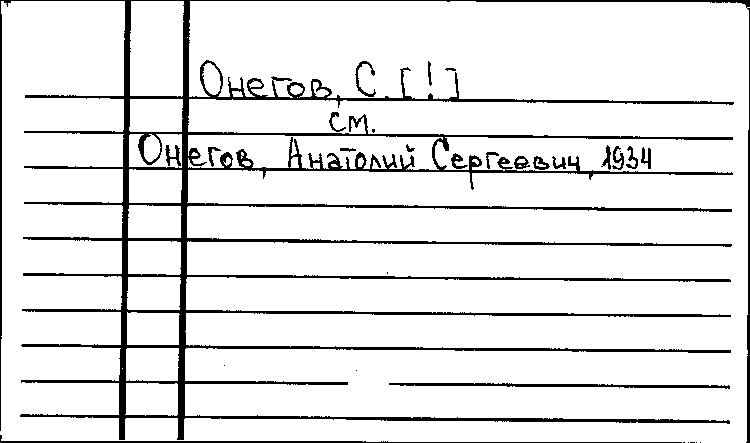 Онегов, С. [!]
см.
Онегов, Анатолий Сергеевич, 1934